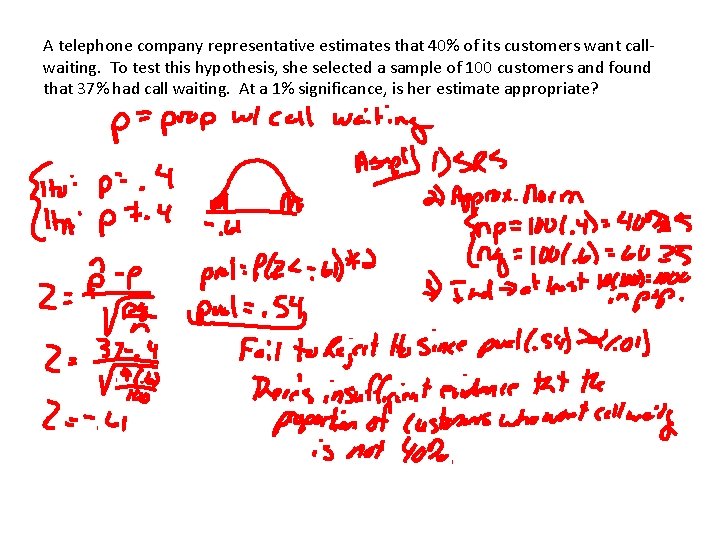 A telephone company representative estimates that 40% of its customers want call-
waiting. To test this hypothesis, she selected a sample of 100 customers and found
that 37% had call waiting. At a 1% significance, is her estimate appropriate?
p = prop w/ call waiting
Ho: p = .4
HA: p ≠ .4
-.61
Z = p̂ - p / √(pq/n)
Z = .37 - .4 / √(.4(.6)/100)
Z = -.61
pval = P(Z < -.61) * 2
pval = .54
1) SRS
2) Approx. Norm
np = 100(.4) = 40 ≥ 5
nq = 100(.6) = 60 ≥ 5
3) Ind → at least 10(100) = 1000
in pop.
Fail to Reject Ho since pval (.54) > (.01)
There's insufficient evidence that the
proportion of customers who want call waiting
is not 40%.